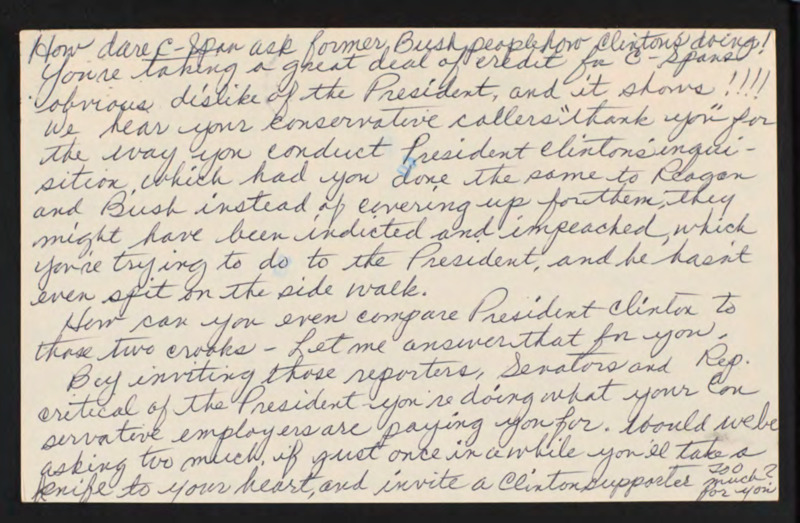 How dare C-Span ask former Bush people how Clinton's doing!
You're taking a great deal of credit for C-Spans
obvious dislike of the President, and it shows!!!!
We hear your conservative callers "thank you" for
the way you conduct President Clinton's inqui-
sition, which had you done the same to Reagan
and Bush instead of covering up for them, they
might have been indicted and impeached, which
you're trying to do to the President, and he hasn't
even spit on the side walk.
How can you even compare President Clinton to
those two crooks - Let me answer that for you.
Bey inviting those reporters, Senators and Rep.
critical of the President you're doing what your Con
servative employers are paying you for. Would we be
asking too much, if just once in a while you'll take a
knife to your heart, and invite a Clinton supporter
too
much?
for you